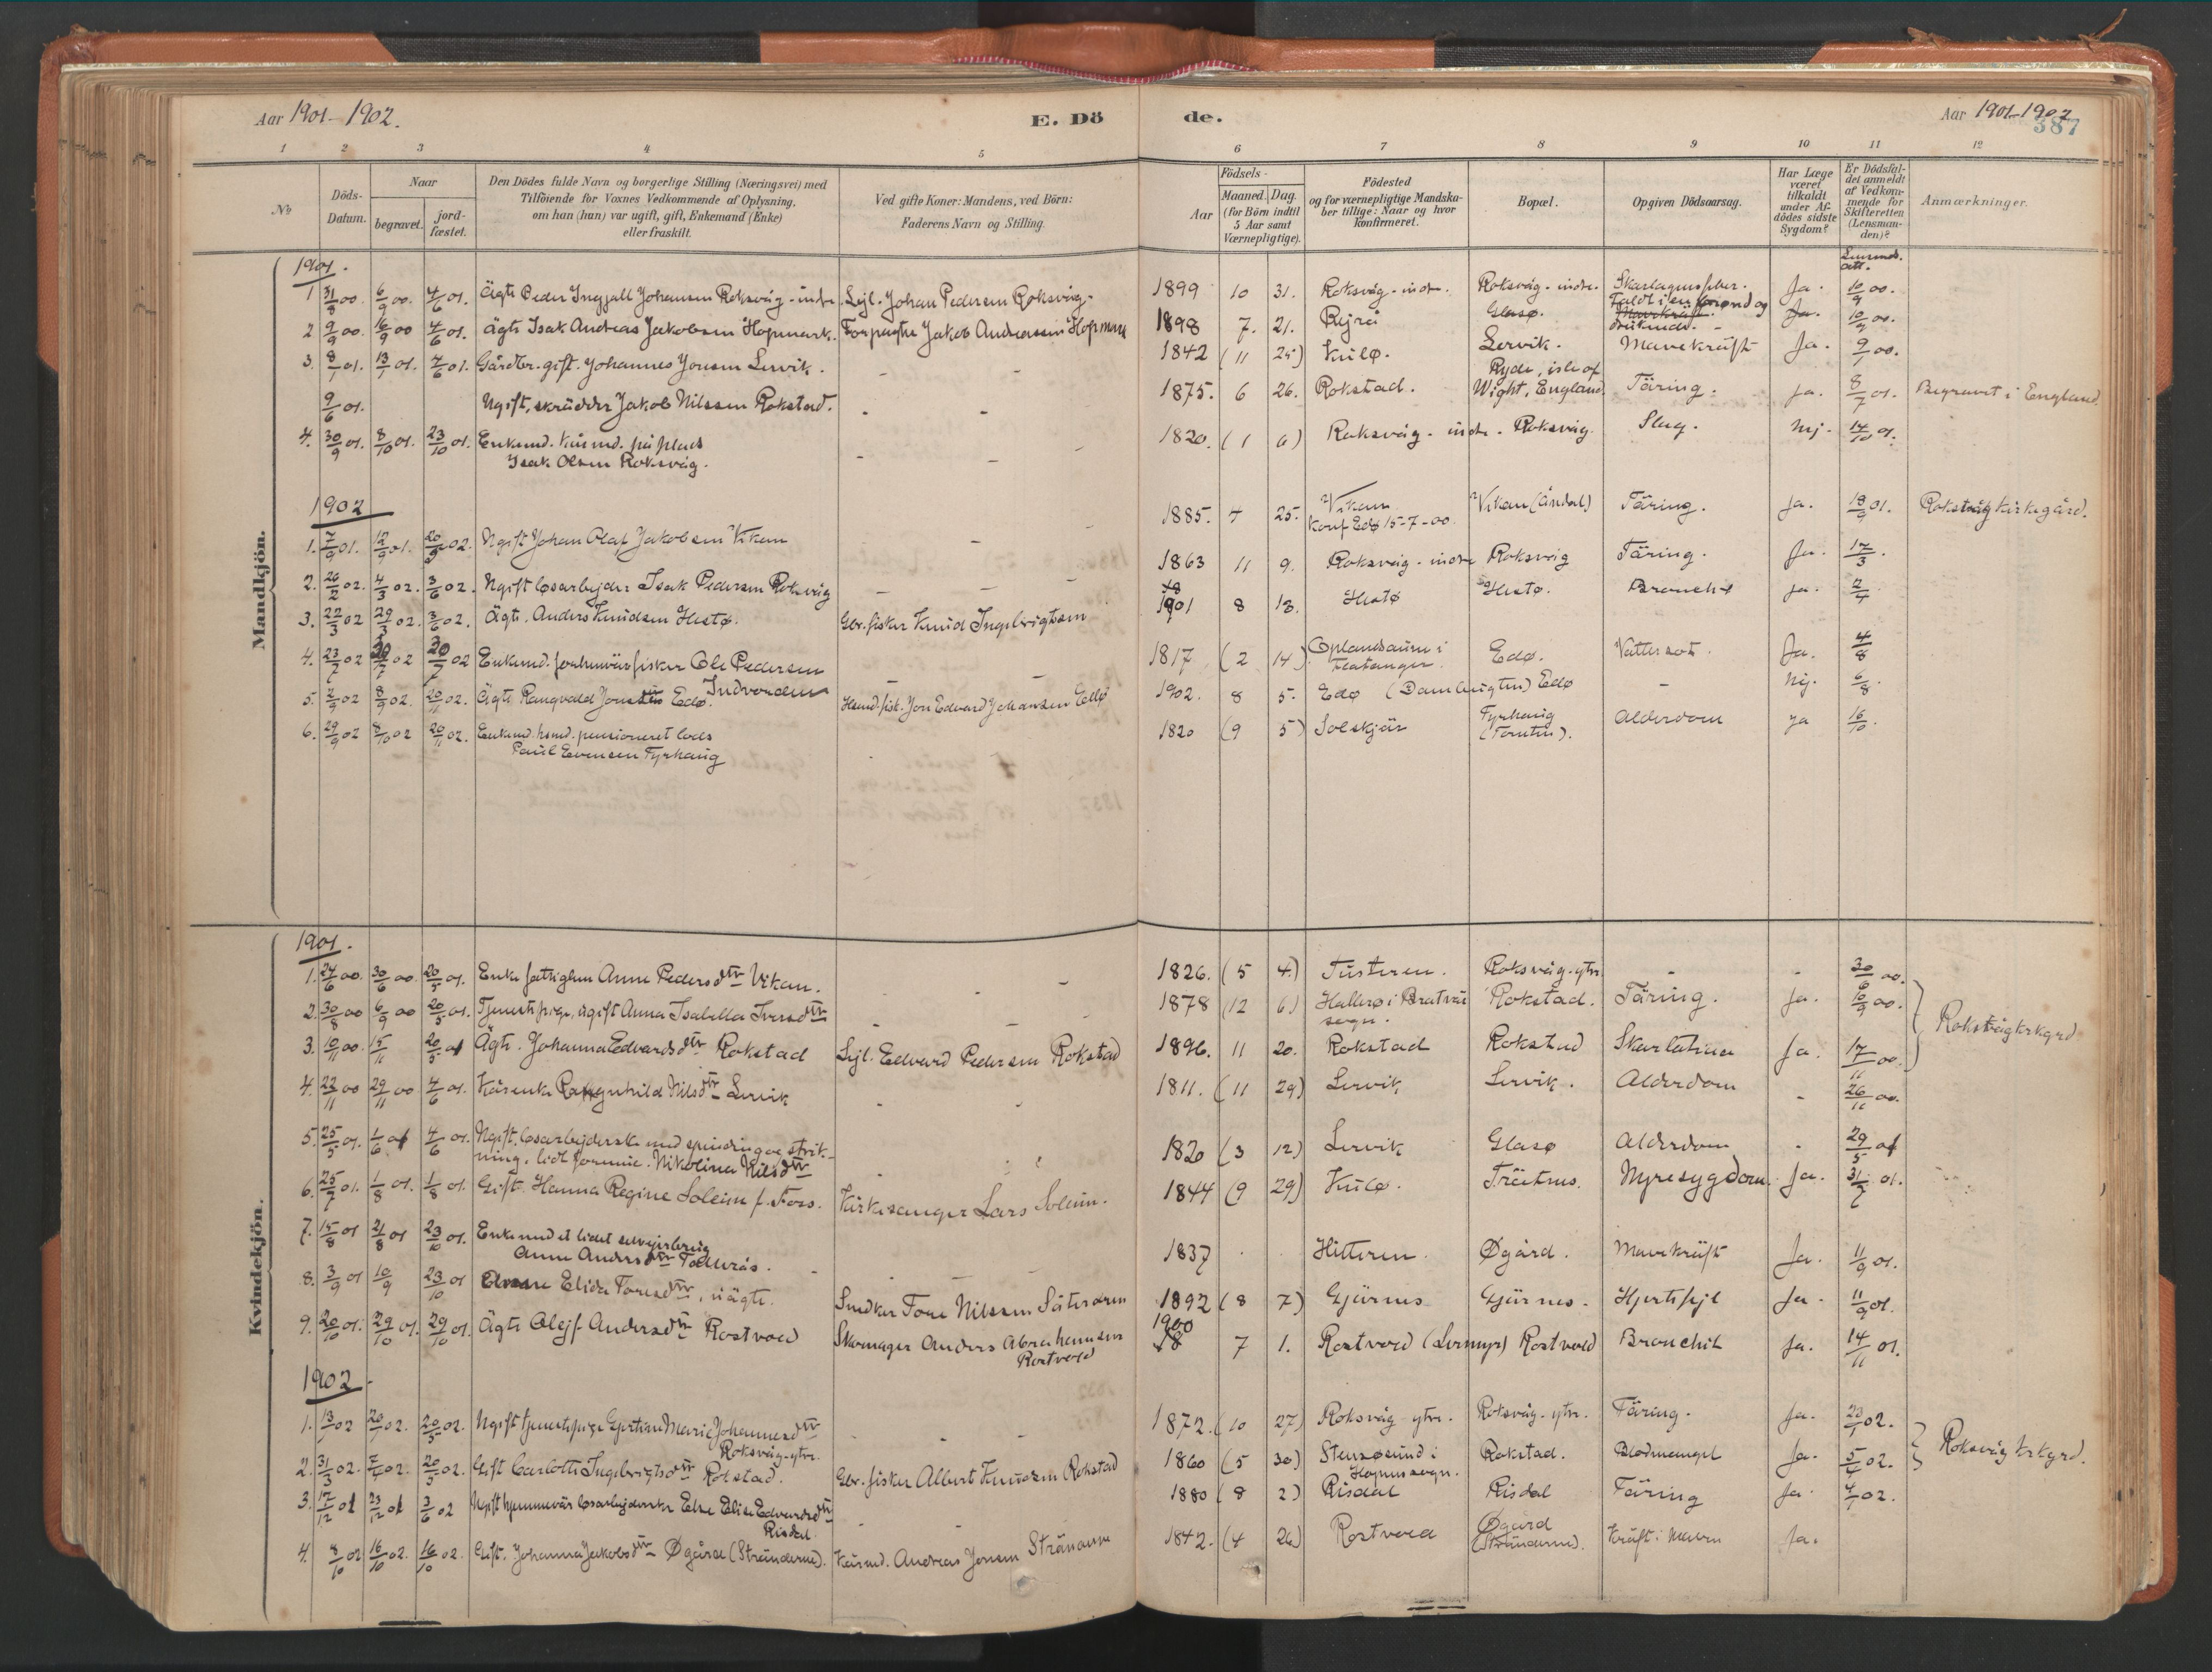 Aar 1901-1902.
E. Dö
de.
Aar 1901-1902
387
1 2 3 4 5 6 7 8 9 10 11 12
No
Döds-Datum.
Naar
begravet.
jord-fæstet.
Den Dödes fulde Navn og borgerlige Stilling (Næringsvei) med
Tilföiende for Voxnes Vedkommende af Oplysning,
om han (hun) var ugift, gift, Enkemand (Enke)
eller fraskilt.
Ved gifte Koner: Mandens, ved Börn:
Faderens Navn og Stilling.
Födsels-
Aar
Maaned. Dag.
(for Börn indtil
5 Aar samt
Værnepligtige).
Födested
og for værnepligtige Mandska-
ber tillige: Naar og hvor
konfirmeret.
Bopæl.
Opgiven Dödsaarsag.
Har Læge
været
tilkaldt
under Af-
dödes sidste
Sygdom?
Er Dödsfal-
det anmeldt
af Vedkom-
mende for
Skifteretten
(Lensman-
den)?
Anmærkninger.
Mandkjön.
1901.
1 31/8 00. 6/9 00. 4/6 01. Ägte Peder Ingjall Johansen Roksvåg-indre. Lejl. Johan Pedersen Roksvåg- 1899 10 31. Roksvåg-indr. Roksvåg-indre. Skarlagensfeber. Ja. 10/9 00.
2 9/9 00. 16/9 00 4/6 01. Ägte Isak Andreas Jakobsen Hopmark. Forpagter Jakob Andreassen Hopmark 1898 7. 21. Rejrå Glasø. Faldt i en brønd og druknede. Ja. 10/9 00.
3. 8/1 01. 13/1 01. 4/6 01. Gårdbr. gift. Johannes Jonsen Lervik. 1842 (11 25) Kulø. Lervik. Mavekräft Ja. 9/1 00.
9/6 01. Ugift, skrädder Jakob Nilssen Rokstad. 1875. 6 26. Rokstad. Ryde, isle of Wight, England. Täring. ja. 8/7 01. Begravet i England.
4. 30/9 01. 8/10 01. 23/10 01. Enkemd. kårmd. på plads
Isak Olsen Roksvåg. 1820. (1 6) Roksvåg-indr. Roksvåg. Slag. nej. 14/10 01.
1902
1. 7/9 01. 12/9 01. 20/5 02. Ugift Johan Olaf Jakobsen Vikan 1885. 4 25. Vikan
konf Edø 15-7-00. Vikan (Åndal) Täring. Ja. 18/9 01. Roksvåg kirkegård.
2. 26/2 02. 4/3 02. 3/6 02. Ugift løsarbejder Isak Pedersen Roksvåg 1863 11 9. Roksvåg-indre Roksvåg Täring. Ja. 17/3.
3. 22/3 02 29/3 02. 3/6 02. Ägte. Anders Knudsen Hestø. Gbr. fisker Knud Ingebrigtsen 1901 8 13. Hestø Hestø. Bronchit ja. 2/4
4. 23/7 02 30/7 02 30/7 02 Enkemd. forhenvär. fisker Ole Pedersen
Indvorden 1817 (2 14) Oplandsauren i
Flatanger. Edø. Vattersot. Ja. 4/8
5. 2/9 02 8/9 02. 20/11 02. Ägte Rangvald Jonsen Edø. Husmd. fisk. Jon Edvard Johansen Edø 1902. 8 5. Edø (Dambugten) Edø - Nej. 6/8.
6. 29/9 02 8/10 02 20/11 02. Enkemd. husmd. pensioneret lods
Paul Evensen Tyrhaug 1820 (9 5) Solskjär Tyrhaug
(Tomten). Alderdom ja 16/10.
Kvindekjön.
1901.
1. 24/6 00. 30/6 00. 20/5 01. Enke fattiglem Anne Pedersdtr Vikan. 1826. (5 4.) Tusteren. Roksvåg-ytre. - - 30/6 00.
2. 30/8 00 6/9 00 20/5 01. Tjenestepige, ugift Anna Isabella Iversdtr 1878 (12 6) Hallerø i Bratvär
sogn. Rokstad. Täring. ja. 10/9 00.
3. 10/11 00. 15/11 20/5 01 Ägte. Johanna Edvardsdtr Rokstad Lejl. Edvard Pedersen Rokstad 1896. 11 20. Rokstad Rokstad Skarlatina Ja. 17/11 00.
Roksvåg krkgrd
4. 22/11 00 29/11 00 4/6 01. Kårenke Rangnhild Nilsdtr Lervik 1811. (11 29) Lervik Lervik. Alderdom - 26/11 00.
5. 25/5 01. 1/6 01 4/6 01. Ugift. løsarbejderske med spinding og strik-
ning, lidt formue. Nikolina Nilsdtr 1820 (3 12) Lervik Glasø Alderdom - 29/5 01
6. 25/7 01. 1/8 01. 1/8 01. Gift. Hanna Regine Soleim f. Foss. Kirkesanger Lars Soleim. 1844 (9 29) Kulø.Trätnes. Nyresygdom. Ja. 31/7 01.
7. 15/8 01 21/8 01 23/10 01. Enke med et lidet selvejerbrug
Anne Andersdtr Tollerås. 1837 Hitteren. Øgård. Mavekräft Ja. 11/9 01.
8. 3/9 01 10/9 23/10 01 Elida Toresdtr, uägte. Snedker Tore Nilssen Säterøren 1892 (8 7) Gjürnes Gjürnes. Hjertefejl Ja. 11/9 01.
9. 20/10 01. 29/10 01. 29/10 01. Ägte Olejf Andersdtr Rostvold Skomager Anders Abrahamsen
Rostvold 1900 7 1. Rostvold (Lermyr) Rostvold Bronchit ja. 14/11 01.
1902
1. 13/1 02 20/1 02. 20/5 02. Ugift tjenestepige Gjertine Marie Johannesdtr
Roksvåg-ytre. 1872. (10 27) Roksvåg-ytre. Roksvåg-ytre. Täring. Ja. 23/1 02.
2. 31/3 02. 7/4 02. 20/5 02. Gift Carlotte Ingebrigtsdtr Rokstad. Gbr. fisker Albert Knudsen Rokstad 1860 (5 30) Stensøsund i
Hopens sogn. Rokstad. Blodmangel Ja. 5/4 02.
Roksvåg krkgrd.
3. 17/12 01 23/12 01 3/6 02 Ugift hjemmevär. løsarbejderske Else Elise Edvardsdtr
Risdal. 1880 (8 2) Risdal Risdal Täring Ja. 4/1 02.
4. 8/10 02 16/10 02. 16/10 02. Gift. Johanna Jakobsdtr Øgård (Stränderne). Kårmd. Andreas Jonsen Stränderne 1842. (4 26) Rostvold Øgård
(Stränderne). Kräft i Maven Ja.